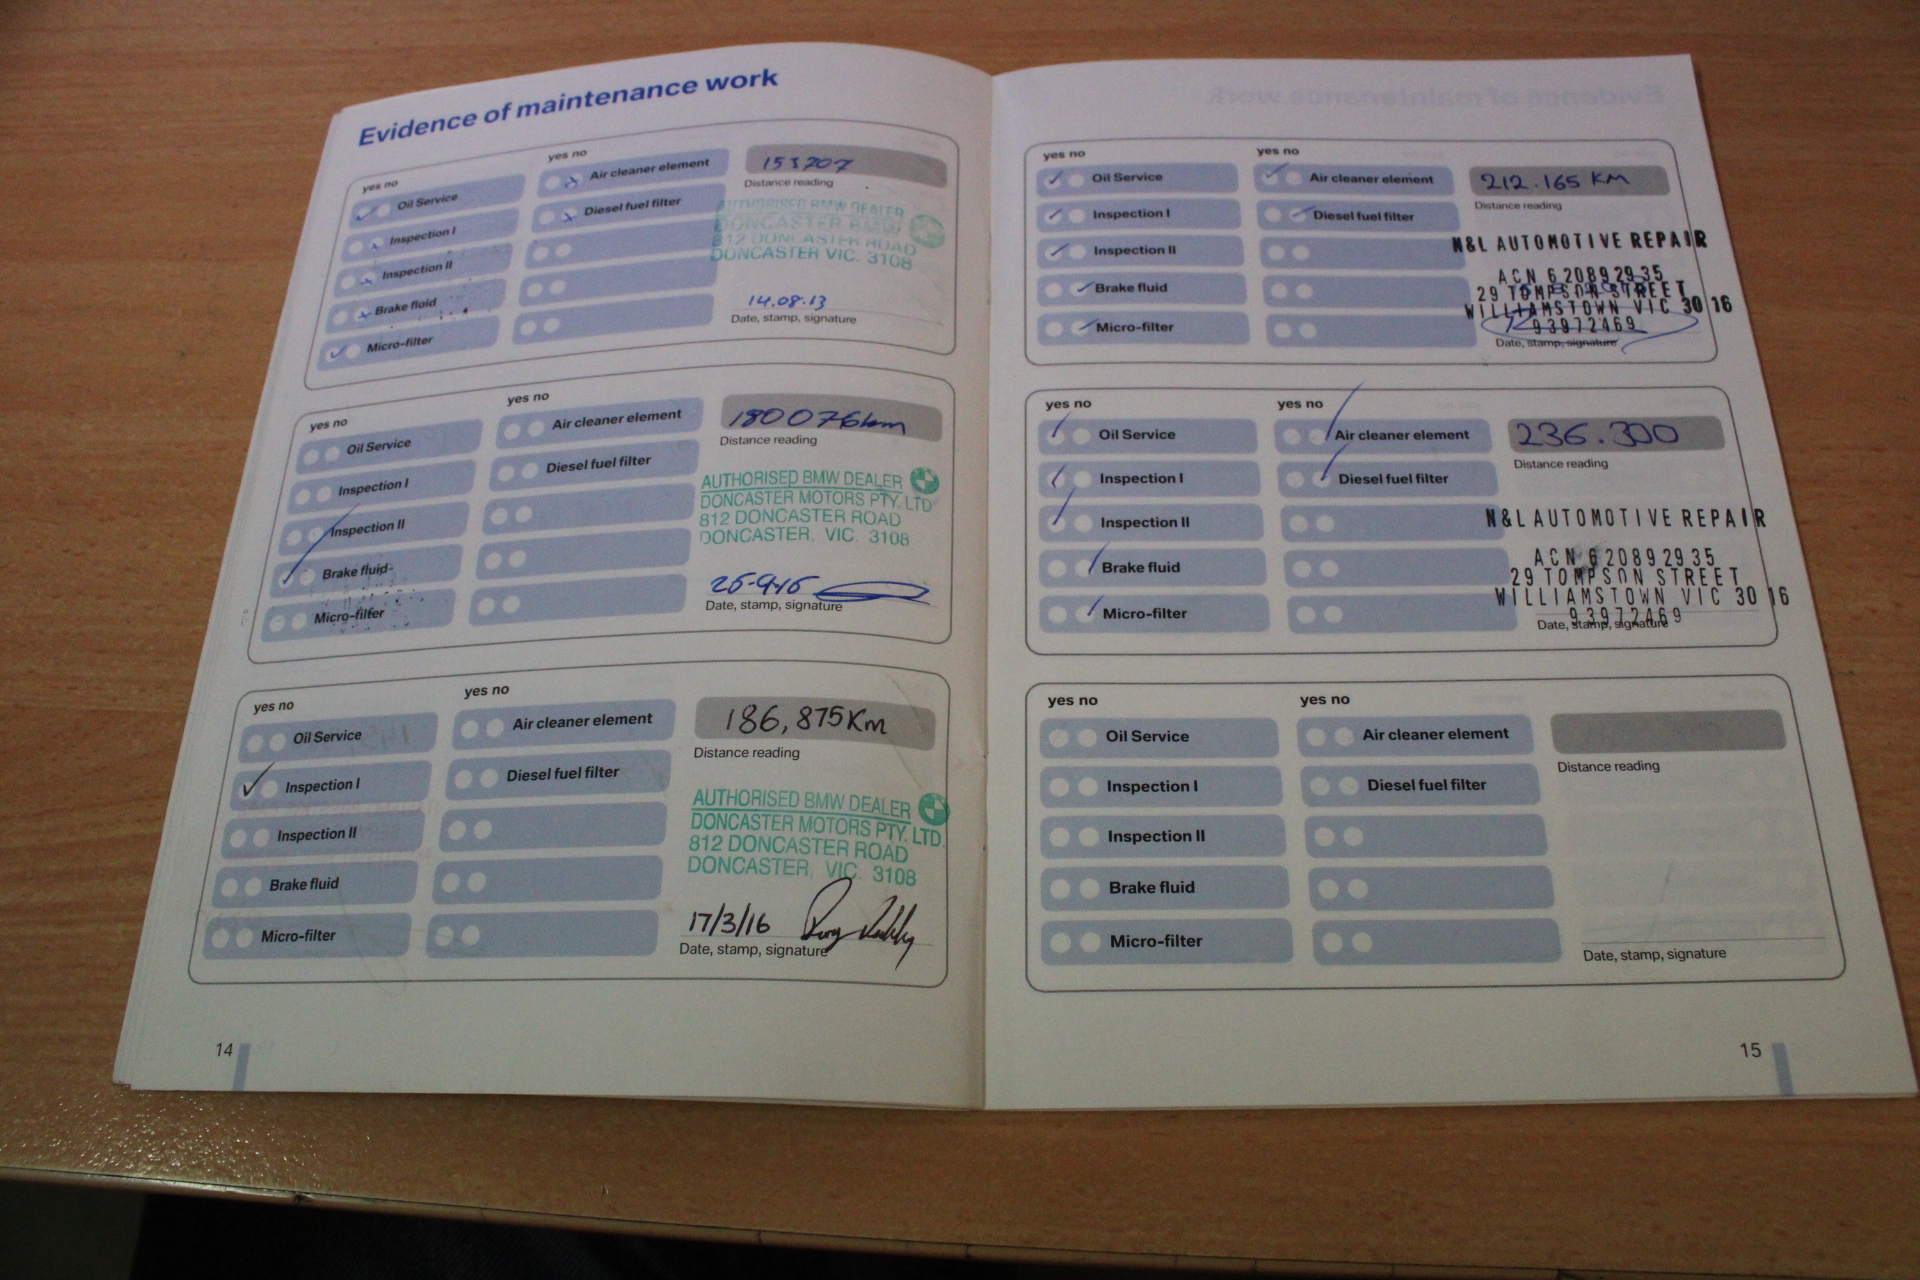 Evidence of maintenance work
yes no
yes no
Oil Service
Air cleaner element
Inspection I
Diesel fuel filter
Inspection II
Brake fluid
Micro-filter
153707
Distance reading
AUTHORISED BMW DEALER
DONCASTER BMW
812 DONCASTER ROAD
DONCASTER VIC. 3108
14.08.13
Date, stamp, signature
yes no
yes no
Oil Service
Air cleaner element
Inspection I
Diesel fuel filter
Inspection II
Brake fluid
Micro-filter
180076km
Distance reading
AUTHORISED BMW DEALER
DONCASTER MOTORS PTY. LTD
812 DONCASTER ROAD
DONCASTER, VIC. 3108
Date, stamp, signature
yes no
yes no
Oil Service
Air cleaner element
Inspection I
Diesel fuel filter
Inspection II
Brake fluid
Micro-filter
186,875Km
Distance reading
AUTHORISED BMW DEALER
DONCASTER MOTORS PTY. LTD
812 DONCASTER ROAD
DONCASTER, VIC. 3108
17/3/16
Date, stamp, signature
14
yes no
yes no
Oil Service
Air cleaner element
Inspection I
Diesel fuel filter
Inspection II
Brake fluid
Micro-filter
212.165 KM
Distance reading
N&L AUTOMOTIVE REPAIR
ACN 620892935
29 TOMPSON STREET
WILLIAMSTOWN VIC 3016
93972469
Date, stamp, signature
yes no
yes no
Oil Service
Air cleaner element
Inspection I
Diesel fuel filter
Inspection II
Brake fluid
Micro-filter
236.300
Distance reading
N&L AUTOMOTIVE REPAIR
ACN 620892935
29 TOMPSON STREET
WILLIAMSTOWN VIC 3016
93972469
Date, stamp, signature
yes no
yes no
Oil Service
Air cleaner element
Inspection I
Diesel fuel filter
Inspection II
Brake fluid
Micro-filter
Distance reading
Date, stamp, signature
15